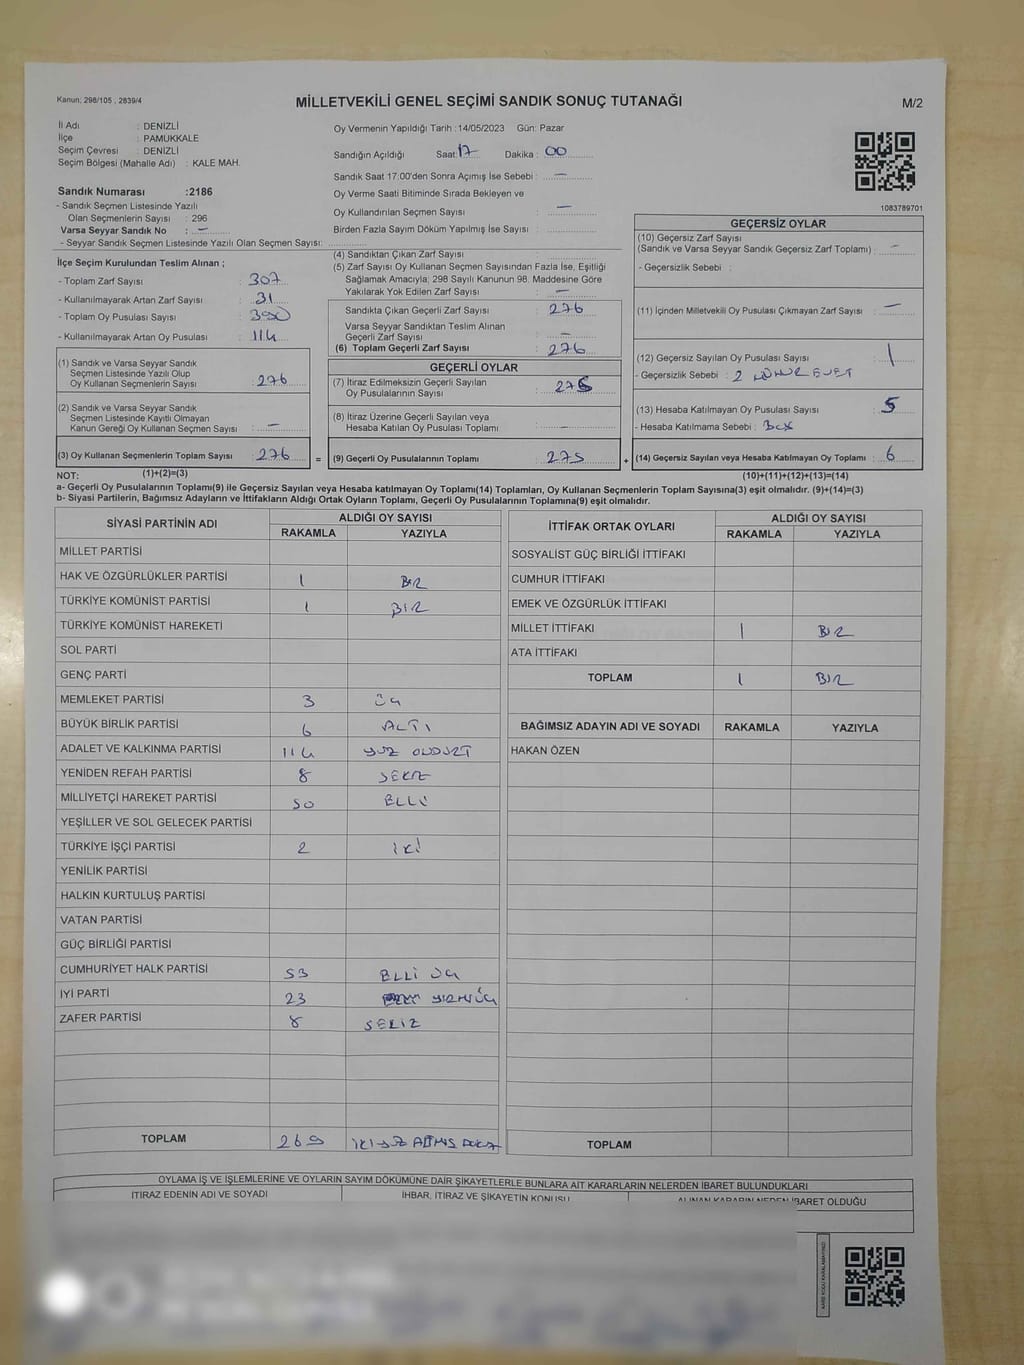 Kanun; 298/105 , 2839/4
MİLLETVEKİLİ GENEL SEÇİMİ SANDIK SONUÇ TUTANAĞI
M/2
İl Adı : DENİZLİ
İlçe : PAMUKKALE
Seçim Çevresi : DENİZLİ
Seçim Bölgesi (Mahalle Adı) : KALE MAH.
Sandık Numarası :2186
- Sandık Seçmen Listesinde Yazılı
Olan Seçmenlerin Sayısı : 296
Varsa Seyyar Sandık No : —
- Seyyar Sandık Seçmen Listesinde Yazılı Olan Seçmen Sayısı:
Oy Vermenin Yapıldığı Tarih :14/05/2023 Gün: Pazar
Sandığın Açıldığı Saat:17 Dakika : 00
Sandık Saat 17:00'den Sonra Açımış İse Sebebi : —
Oy Verme Saati Bitiminde Sırada Bekleyen ve
Oy Kullandırılan Seçmen Sayısı : —
Birden Fazla Sayım Döküm Yapılmış İse Sayısı :
1083789701
İlçe Seçim Kurulundan Teslim Alınan ;
- Toplam Zarf Sayısı : 307
- Kullanılmayarak Artan Zarf Sayısı : 31
- Toplam Oy Pusulası Sayısı : 390
- Kullanılmayarak Artan Oy Pusulası : 114
(1) Sandık ve Varsa Seyyar Sandık
Seçmen Listesinde Yazılı Olup
Oy Kullanan Seçmenlerin Sayısı : 276
(2) Sandık ve Varsa Seyyar Sandık
Seçmen Listesinde Kayıtlı Olmayan
Kanun Gereği Oy Kullanan Seçmen Sayısı : —
(3) Oy Kullanan Seçmenlerin Toplam Sayısı : 276
(4) Sandıktan Çıkan Zarf Sayısı :
(5) Zarf Sayısı Oy Kullanan Seçmen Sayısından Fazla İse, Eşitliği
Sağlamak Amacıyla; 298 Sayılı Kanunun 98. Maddesine Göre
Yakılarak Yok Edilen Zarf Sayısı : —
Sandıkta Çıkan Geçerli Zarf Sayısı : 276
Varsa Seyyar Sandıktan Teslim Alınan
Geçerli Zarf Sayısı : —
(6) Toplam Geçerli Zarf Sayısı : 276
GEÇERLİ OYLAR
(7) İtiraz Edilmeksizin Geçerli Sayılan
Oy Pusulalarının Sayısı : 275
(8) İtiraz Üzerine Geçerli Sayılan veya
Hesaba Katılan Oy Pusulası Toplamı : —
= (9) Geçerli Oy Pusulalarının Toplamı : 275 +
GEÇERSİZ OYLAR
(10) Geçersiz Zarf Sayısı
(Sandık ve Varsa Seyyar Sandık Geçersiz Zarf Toplamı) : —
- Geçersizlik Sebebi :
(11) İçinden Milletvekili Oy Pusulası Çıkmayan Zarf Sayısı : —
(12) Geçersiz Sayılan Oy Pusulası Sayısı : 1
- Geçersizlik Sebebi : 2 MÜHÜR EVET
(13) Hesaba Katılmayan Oy Pusulası Sayısı : 5
- Hesaba Katılmama Sebebi : Boş
(14) Geçersiz Sayılan veya Hesaba Katılmayan Oy Toplamı : 6
NOT: (1)+(2)=(3) (10)+(11)+(12)+(13)=(14)
a- Geçerli Oy Pusulalarının Toplamı(9) ile Geçersiz Sayılan veya Hesaba katılmayan Oy Toplamı(14) Toplamları, Oy Kullanan Seçmenlerin Toplam Sayısına(3) eşit olmalıdır. (9)+(14)=(3)
b- Siyasi Partilerin, Bağımsız Adayların ve İttifakların Aldığı Ortak Oyların Toplamı, Geçerli Oy Pusulalarının Toplamına(9) eşit olmalıdır.
SİYASİ PARTİNİN ADI ALDIĞI OY SAYISI
RAKAMLA YAZIYLA
MİLLET PARTİSİ
HAK VE ÖZGÜRLÜKLER PARTİSİ 1 BİR
TÜRKİYE KOMÜNİST PARTİSİ 1 BİR
TÜRKİYE KOMÜNİST HAREKETİ
SOL PARTİ
GENÇ PARTİ
MEMLEKET PARTİSİ 3 ÜÇ
BÜYÜK BİRLİK PARTİSİ 6 ALTI
ADALET VE KALKINMA PARTİSİ 114 YÜZ ONDÖRT
YENİDEN REFAH PARTİSİ 8 SEKİZ
MİLLİYETÇİ HAREKET PARTİSİ 50 ELLİ
YEŞİLLER VE SOL GELECEK PARTİSİ
TÜRKİYE İŞÇİ PARTİSİ 2 İKİ
YENİLİK PARTİSİ
HALKIN KURTULUŞ PARTİSİ
VATAN PARTİSİ
GÜÇ BİRLİĞİ PARTİSİ
CUMHURİYET HALK PARTİSİ 53 ELLİ ÜÇ
İYİ PARTİ 23 YİRMİÜÇ
ZAFER PARTİSİ 8 SEKİZ
TOPLAM 269 İKİ YÜZ ATMIŞ DOKUZ
İTTİFAK ORTAK OYLARI ALDIĞI OY SAYISI
RAKAMLA YAZIYLA
SOSYALİST GÜÇ BİRLİĞİ İTTİFAKI
CUMHUR İTTİFAKI
EMEK VE ÖZGÜRLÜK İTTİFAKI
MİLLET İTTİFAKI 1 BİR
ATA İTTİFAKI
TOPLAM 1 BİR
BAĞIMSIZ ADAYIN ADI VE SOYADI RAKAMLA YAZIYLA
HAKAN ÖZEN
TOPLAM
OYLAMA İŞ VE İŞLEMLERİNE VE OYLARIN SAYIM DÖKÜMÜNE DAİR ŞİKAYETLERLE BUNLARA AİT KARARLARIN NELERDEN İBARET BULUNDUKLARI
İTİRAZ EDENİN ADI VE SOYADI İHBAR, İTİRAZ VE ŞİKAYETİN KONUSU ALINAN KARARIN NEDEN İBARET OLDUĞU